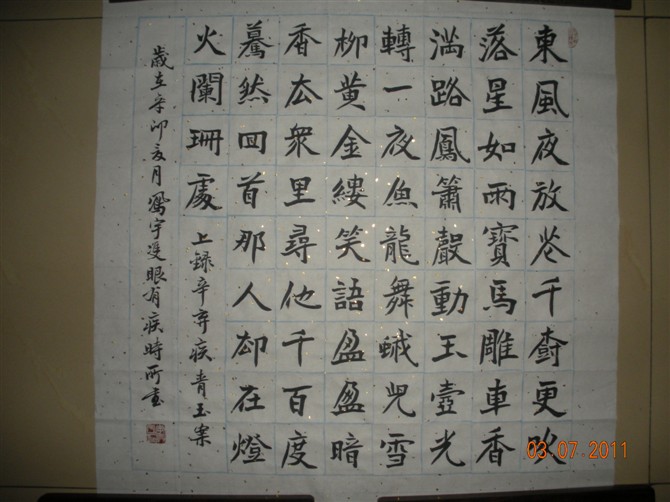 東風夜放花千樹更吹
落星如雨寶馬雕車香
滿路鳳簫聲動玉壺光
轉一夜魚龍舞蛾兒雪
柳黃金縷笑語盈盈暗
香去眾里尋他千百度
驀然回首那人却在燈
火闌珊處 上錄辛弃疾青玉案
歲在辛卯月鳳宇雙眼有疾時所書
03.07.2011